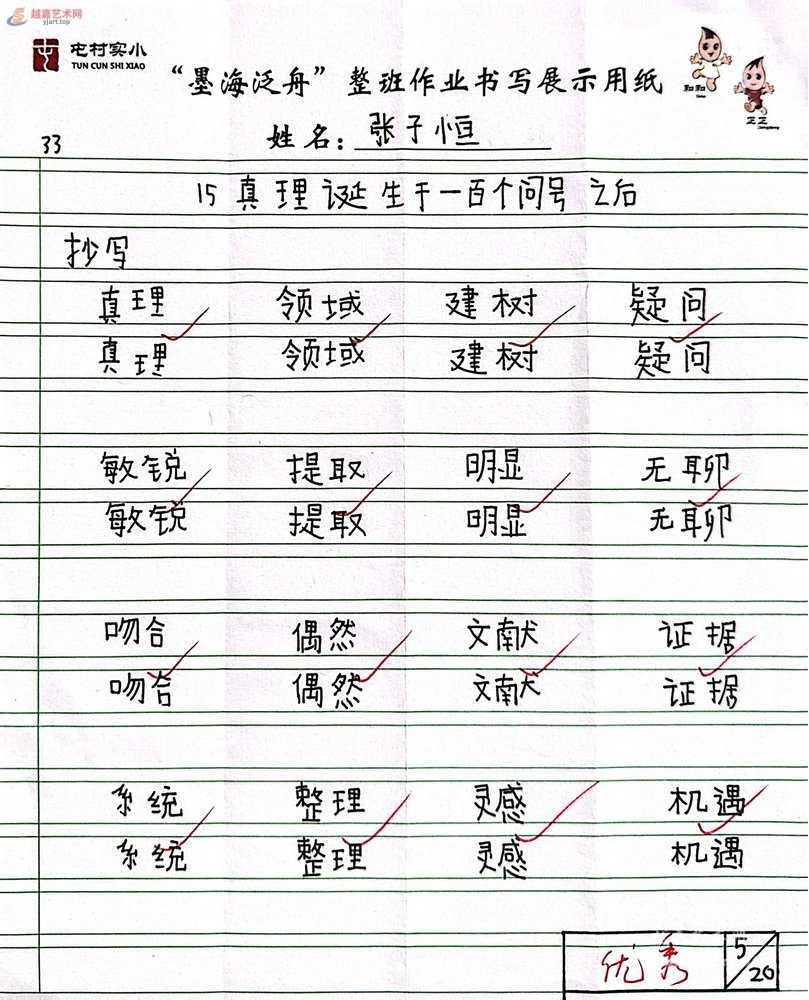 越嘉艺术网
yjart.top
屯村实小
TUN CUN SHI XIAO
“墨海泛舟”整班作业书写展示用纸
和和
正正
33 姓名：张子恒
15 真理诞生于一百个问号之后
抄写
真理 领域 建树 疑问
真理 领域 建树 疑问
敏锐 提取 明显 无聊
敏锐 提取 明显 无聊
吻合 偶然 文献 证据
吻合 偶然 文献 证据
系统 整理 灵感 机遇
系统 整理 灵感 机遇
优秀 5/20